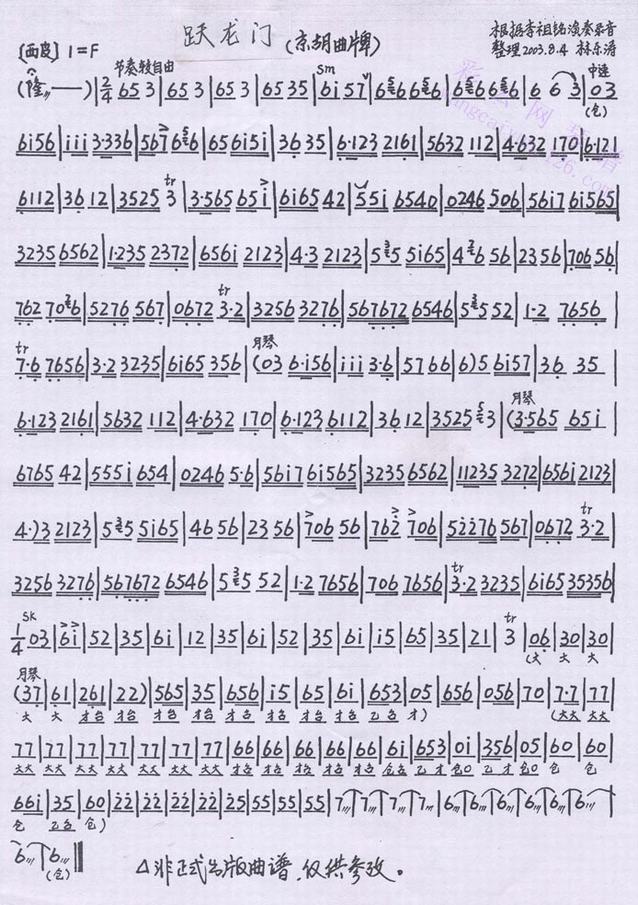 跃龙门 (京胡曲牌)
[西皮] 1=F
根据李祖铭演奏录音
整理2003.8.4 林东涛
节奏较自由 sm 中速
(隆〃——)|2/4 65 3|65 3|65 3|65 35|6i 57|6 6 6 6|6 6 6 6|6 6 3|03
(仓)
6i56|iii 3·336|567 6 6|65 6i5i|36 35|6·123 2161|5632 112|4·632 170|6·121
6112|36 12|3525 3|3·565 65i|6i65 42|55i 6540|0246 506|5617 6i565|
3235 6562|1·235 2372|656i 2123|4·3 2123|5 5 5165|4 6 56|2356|706 56|
762 70 6|5276 567|0672 3·2|3256 3276|567672 6546|5 5 52|1·2 7656|
7·6 7656|3·2 3235|6i65 356|(03 6·156|iii 3·6|57 66|6)5 6i57|36 35|
月琴
6·123 2161|5632 112|4·632 170|6·123 6112|36 12|3525 3|(3·565 65i|
月琴
6765 42|555i 654|0246 5·6|56i7 6i565|3235 6562|11235 3272|656i 2123|
4·)3 2123|5 5 5165|46 56|23 56|706 56|762 706|52276 567|0672 3·2|
3256 3276|567672 6546|5 5 52|1·2 7656|706 7656|3·2 3235|6i65 35356|
sk
1/4 03|6i|52|35|6i|12|35|6i|52|35|6i|i5|65|35|21|3|06|30|30|
(大 大 大
月琴
(37|61|261|22)|565|35|656|i5|65|6i|653|05|656|056|70|7·7|77|
大 大 才台 才台 才台 才台 才台 才台 才台 才台 乙台 才) (大大 大大
77|77|77|77|77|77|77|66|66|66|66|66|6i|653|0i|356|05|60|60|
大大 大大 大大 大大 大大 大大 大大 才台 才台 才台 才台 才台 仓台 乙才 仓0 乙才 仓0 仓 仓
66i|35|60|22|22|22|22|25|55|55|55|7|7|7|7|6|6|6|6|6|6
仓 乙台 仓)
6|6‖
(仓)
△非正式出版曲谱,仅供参改。